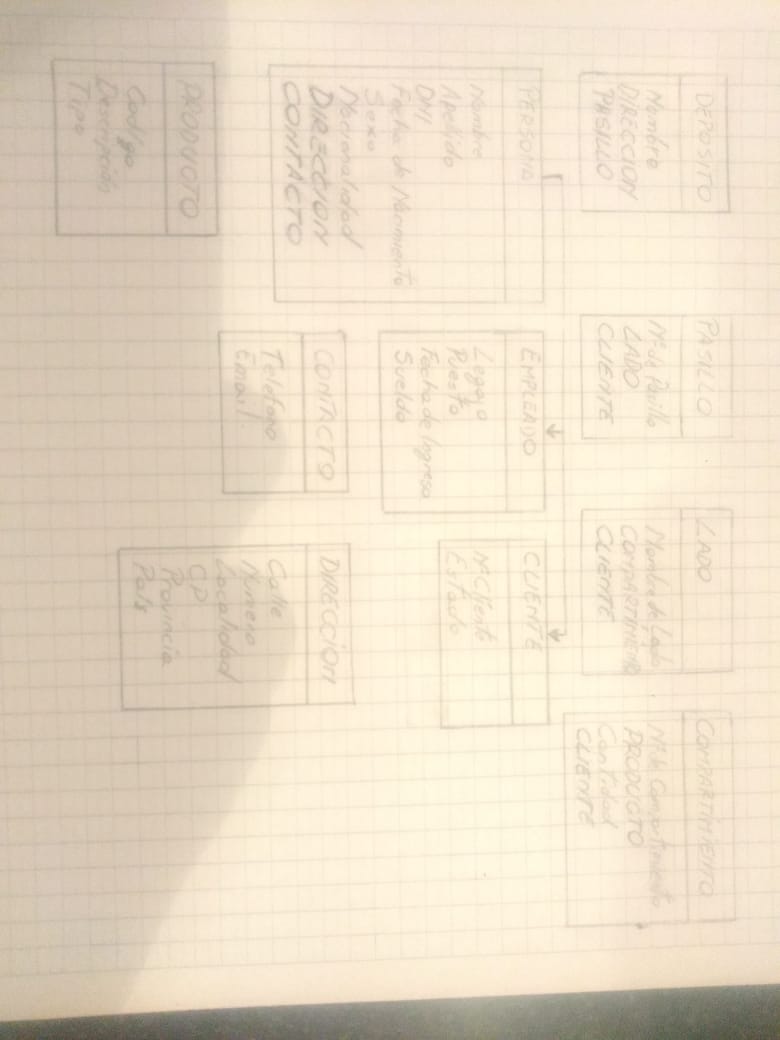 DEPOSITO
Nombre
DIRECCION
PASILLO
PASILLO
Nº de Pasillo
LADO
CLIENTE
LADO
Nombre de Lado
COMPARTIMIENTO
CLIENTE
COMPARTIMIENTO
Nº de Compartimiento
PRODUCTO
Cantidad
CLIENTE
PERSONA
Nombre
Apellido
DNI
Fecha de Nacimiento
Sexo
Nacionalidad
DIRECCION
CONTACTO
EMPLEADO
Legajo
Puesto
Fecha de Ingreso
Sueldo
CLIENTE
Nº Cliente
Estado
CONTACTO
Telefono
Email
DIRECCION
Calle
Numero
Localidad
CP
Provincia
País
PRODUCTO
Codigo
Descripción
Tipo